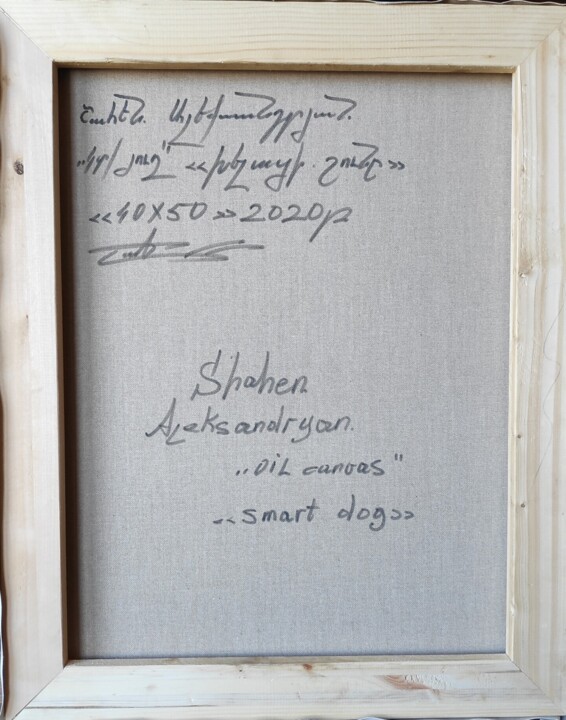 Շահեն. Ալեքսանդրյան.
„կտ/յուղ" <<խելացի. շունը>>
<<40X50>> 2020թ
Shahen
Aleksandryan.
„oil canvas"
<<smart dog>>